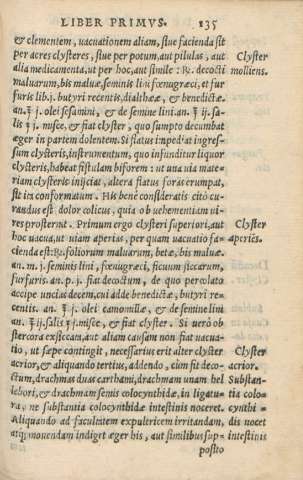 LIBER PRIMVS. 135
& clementem, uacuationem aliam, siue facienda sit
per acres clysteres, siue per potum, aut pilulas, aut
alia medicamenta, ut per hoc, aut simile: ℞. decocti
maluarum, bis maluæ, seminis lini fœnugræci, et fur
furis lib. j. butyri recentis, dialthææ, & benedictæ.
an. ℥ j. olei sesamini, & de semine lini. an. ℥ ij. sa-
lis ℥ j. misce, & fiat clyster, quo sumpto decumbat
æger in partem dolentem. Si flatus impediat ingres-
sum clysteris, instrumentum, quo infunditur liquor
clysteris, habeat fistulam biforem: ut una uia mate-
riam clysteris injiciat, altera flatus foras erumpat,
sit in conformatum. His bene consideratis citò cu-
randus est dolor colicus, quia ob uehementiam ui-
res prosternit. Primum ergo clysteri superiori, aut
hoc uacua, ut uiam aperias, per quam uacuatio fa-
cienda est: ℞. foliorum maluarum, betæ, bis maluæ.
an. m. j. seminis lini, fœnugræci, ficuum siccarum,
furfuris. an. p. j. fiat decoctum, de quo percolato
accipe uncias decem, cui adde benedictæ, butyri re-
centis. an. ℥ j. olei camomillæ, & de semine lini
an. ℥ ij. salis ʒ j. misce, & fiat clyster. Si uerò ob
stercora exiccata, aut aliam causam non fiat uacua-
tio, ut sæpe contingit, necessarius erit alter clyster
acrior, & aliquando tertius, addendo, cùm fit deco-
ctum, drachmas duas carthami, drachmam unam hel
lebori, & drachmam semis colocynthidæ, in ligatu-
ra, ne substantia colocynthidæ intestinis noceret.
Aliquando ad facultatem expultricem irritandam,
atque mouendam indiget æger his, aut similibus sup-
posito
Clyster
molliens.
Clyster
aperiēs.
Clyster
acrior.
Substan-
tia colo-
cynthi=
dis nocet
intestinis